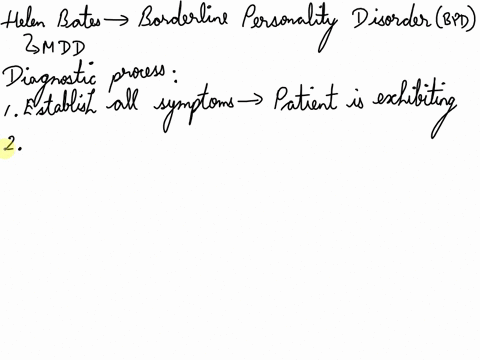 Helen Bates → Borderline Personality Disorder (BPD)
↳ MDD
Diagnostic process:
1. Establish all symptoms → Patient is exhibiting
2.